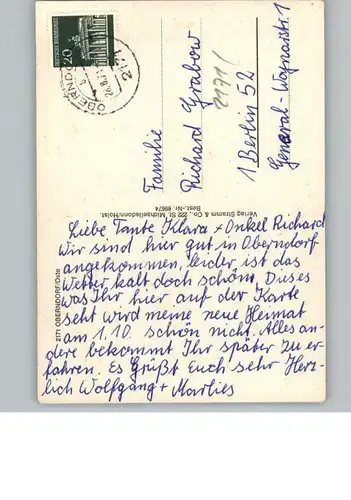 20
OBERNDO
2171
Familie
Richard Grabow
1 Berlin 52
General-Woynastr. 1
2171/
Verlag Stramm & Co., 222 St. Michaelisdonn/Holst.
Best.-Nr. 69874
2171 OBERNDORF/Oste
Liebe Tante Klara + Onkel Richard
Wir sind hier gut in Oberndorf
angekommen, leider ist das
Wetter kalt doch schön. Dieses
was Ihr hier auf der Karte
seht wird meine neue Heimat
am 1.10. schön nicht. Alles an-
dere bekommt Ihr später zu er-
fahren. Es Grüßt Euch sehr Herz-
lich Wolfgang + Marlies